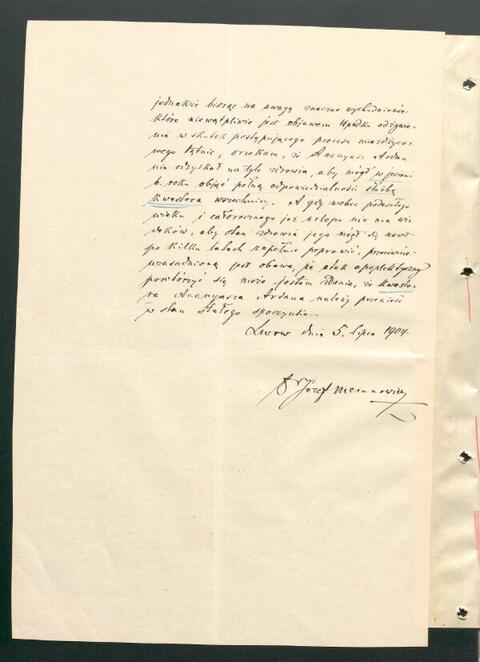 jednakże biorąc na uwagę znaczne wychudnienie
które niewątpliwie jest objawem upadku odżywie-
nia w skutek postępującego procesu miażdżyco-
wego tętnic, orzekam, że Ananyasz Ardan
nie odzyskał na tyle zdrowia, aby mógł w jesieni
b. roku objąć pełną odpowiedzialności służbę
Kwestora wszechnicy. A gdy wobec podeszłego
wieku i całorocznego już urlopu nie ma wi-
doków, aby stan zdrowia jego mógł się nawet
po kilku latach zupełnie poprawić, przeciwnie
uzasadnioną jest obawa, że atak apoplektyczny
powtórzyć się może jestem zdania, że Kwesto-
ra Ananyasza Ardana należy przenieść
w stan stałego spoczynku.
Lwów dnia 5. lipca 1904.
Dr Józef